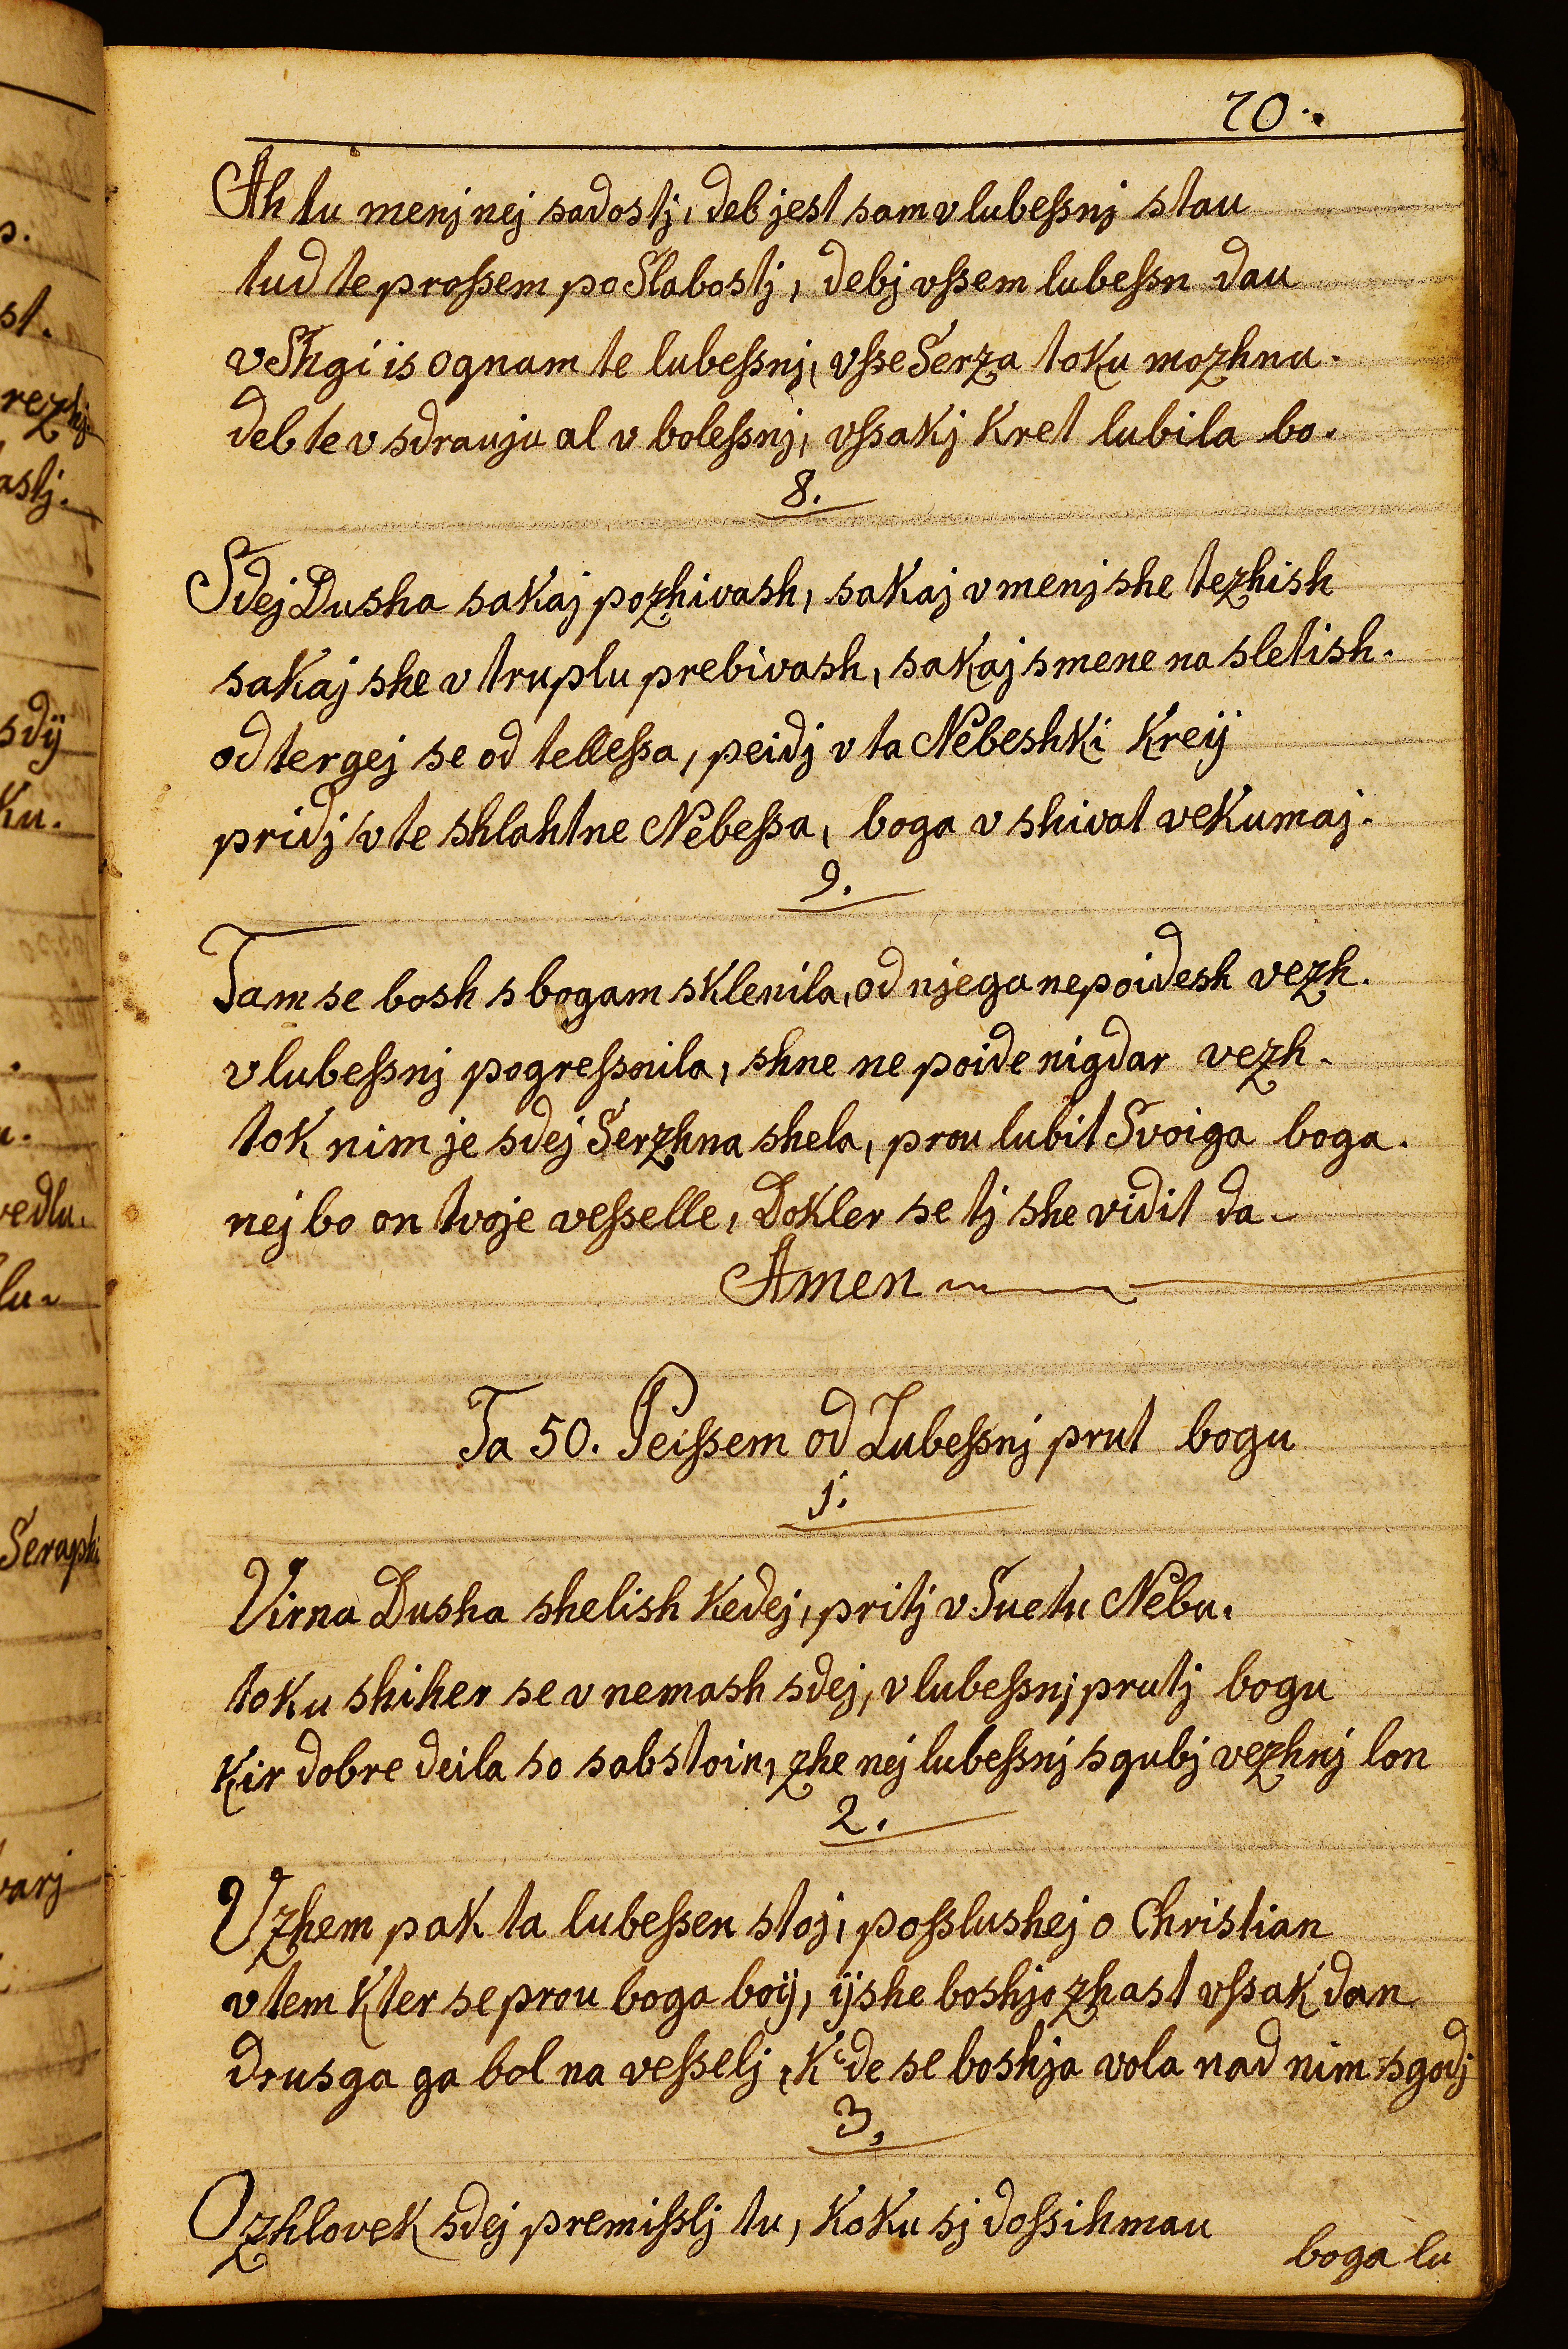 70.
Ah tu menj nej sadostj, deb jest sam v lubeſsnj stau
tud te proſsem po Slabostj, debj vſsem lubeſsn dau
v Shgi is ognam te lubeſsnj, vſse Serza toku mozhnu.
deb te v sdrauju al v boleſsnj, vſsakj Kret lubila bo.
8.
Sdej Dusha sakaj pozhivash, sakaj v menj she tezhish
sakaj she v truplu prebivash, sakaj s mene na sletish.
od tergej se od telleſsa, peidj v ta Nebeshki Kreÿ
pridj v te shlahtne Nebeſsa, boga v shivat vekumaj.
9.
Tam se bosh s bogam sklenila, od njega ne poidesh vezh.
v lubeſsnj pogreſsnila, shne ne poide nigdar vezh.
tok nim je sdej Serzhna shela, prou lubit Svoiga boga.
nej bo on tvoje veſselle, Dokler se tj she vidit da.
Amen
Ta 50. Peiſsem od Lubeſsnj prut bogu
1.
Virna Dusha shelish Kedej, pritj v Suetu Nebu.
toku shiher se v nemash sdej, v lubeſsnj prutj bogu
Kir dobre deila so sabstoin, zhe nej lubeſsnj sgubj vezhnj lon
2.
Vzhem pak ta lubeſsen stoj, poſslushej o Christian
v tem Kter se prou boga boÿ, ÿshe boshjo zhast vſsak dan
drusga ga bol na veſselj, Kde se boshja vola nad nim sgodj
3.
O zhlovek sdej premiſslj tu, Koku sj doſsihmau
boga lu
st.
sdÿ
Ku.
vedlu.
lu.
varj